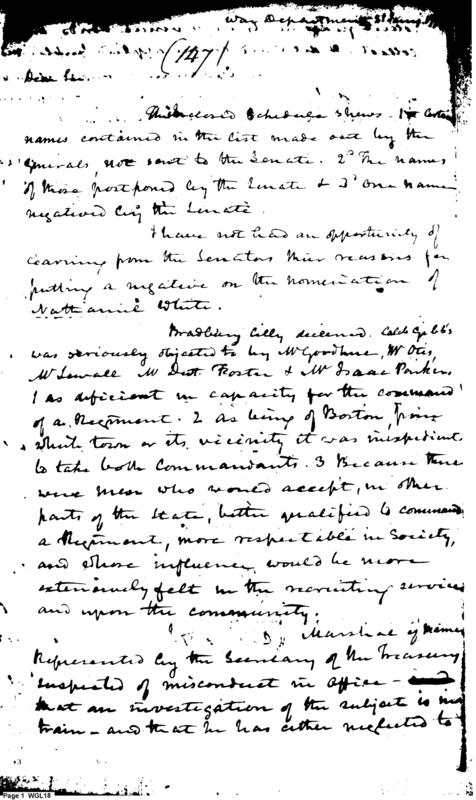 War Department
(147)
Dear Sir.
The inclosed Schedule shews. 1st Certain
names contained in the list made out by the
Generals, not sent to the Senate. 2d The names
of those postponed by the Senate & 3d one name
negatived by the Senate.
I have not had an opportunity of
learning from the Senators their reasons for
putting a negative on the nomination of
Nathaniel White.
Bradbury Cilly deceased. Caleb Gibbs
was seriously objected to by Mr Goodhue, Mr Otis,
Mr Sewall Mr Dwt Foster & Mr Isaac Parker.
1 as deficient in capacity for the command
of a Regiment. 2 as being of Boston, from
which town or its vicinity it was inexpedient
to take both Commandants. 3 Because there
were men who would accept, in other
parts of the State, better qualified to command
a Regiment, more respectable in Society,
and whose influence would be more
extensively felt in the recruiting service
and upon the community.
Marshal of Maine
Represented by the Secretary of the Treasury
suspected of misconduct in office — and
that an investigation of the subject is in
train — and that he has either neglected to
Page 1 WGL18